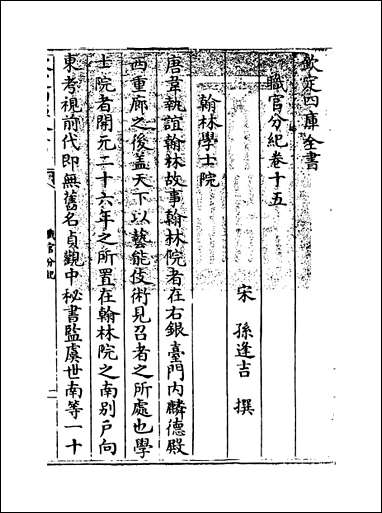 欽定四庫全書
職官分紀卷十五
宋 孫逢吉 撰
翰林學士院
唐韋執誼翰林故事翰林院者在右銀臺門内麟德殿
西重廊之後蓋天下以藝能伎術見召者之所處也學
士院者開元二十六年之所置在翰林院之南別戶向
東考視前代即無舊名貞觀中秘書監虞世南等一十
職官分紀